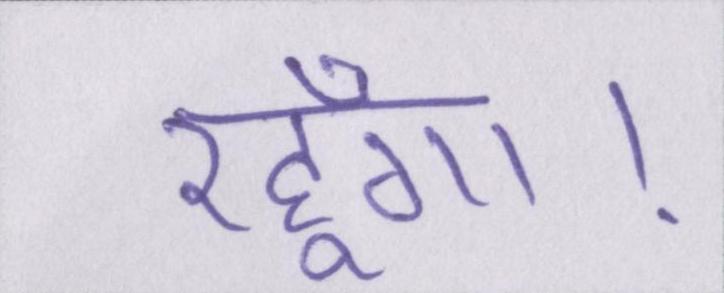 रहूँगा!